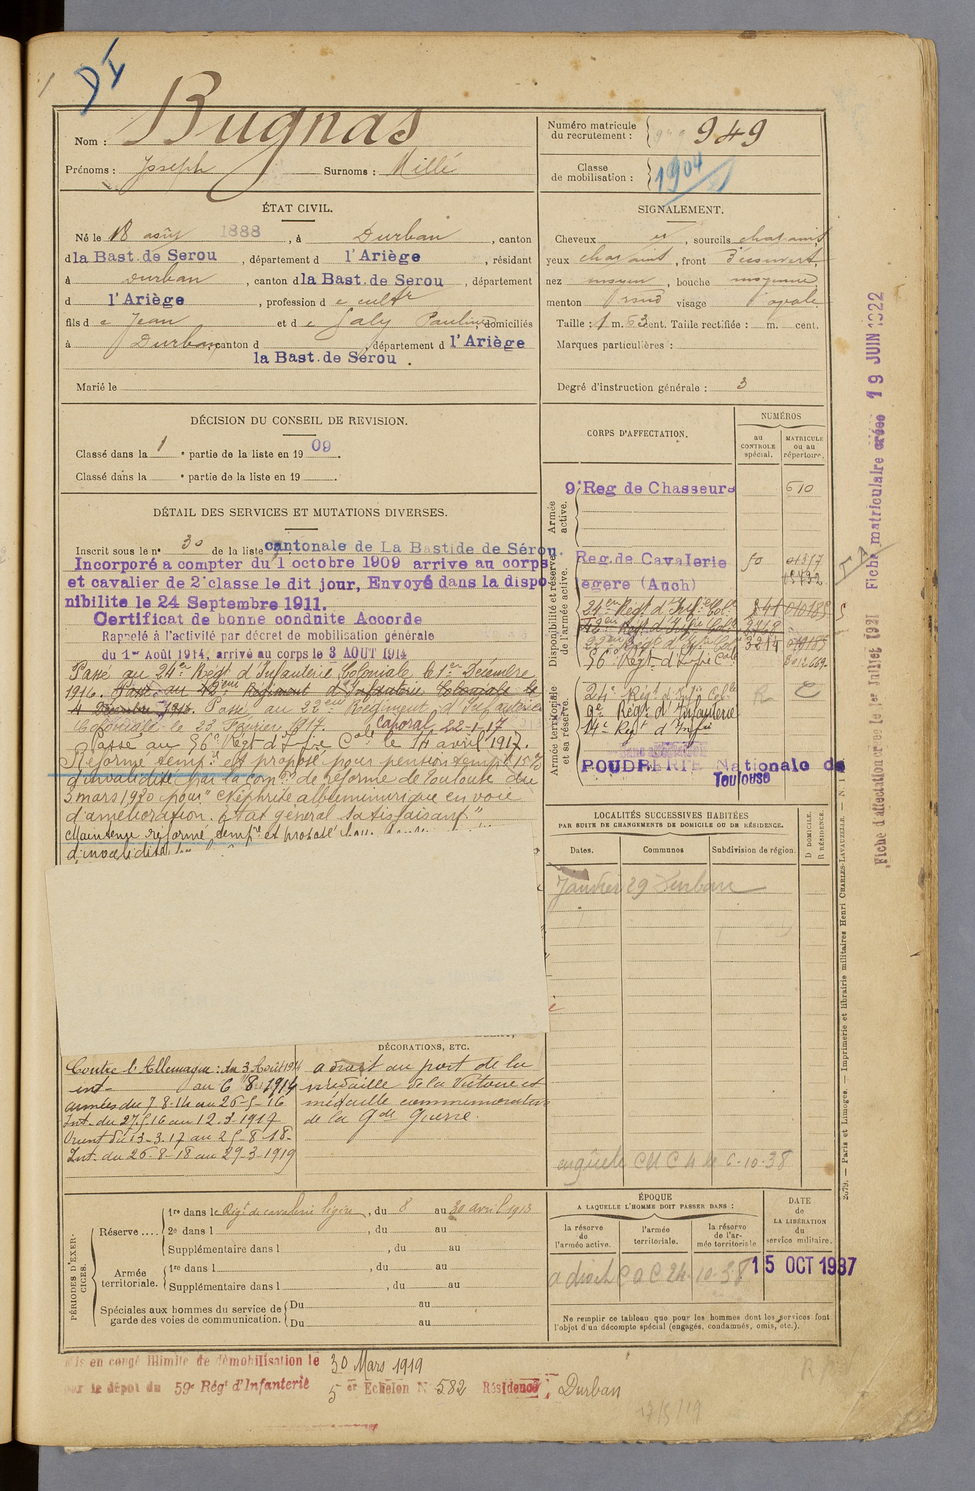 Nom : Bugnas
Prénoms : Joseph Surnoms : Millé
ÉTAT CIVIL.
Né le 18 août 1888, à Durban, canton
d la Bast. de Serou, département d l'Ariège, résidant
à Durban, canton d la Bast. de Serou, département
d l'Ariège, profession de cultr
fils de Jean et de Galy Pauline, domiciliés
à Durban canton d, département d l'Ariège
la Bast. de Sérou.
Marié le
DÉCISION DU CONSEIL DE REVISION.
Classé dans la 1e partie de la liste en 1909.
Classé dans la e partie de la liste en 19
DÉTAIL DES SERVICES ET MUTATIONS DIVERSES.
Inscrit sous le n° 30 de la liste cantonale de La Bastide de Sérou.
Incorporé a compter du 1 octobre 1909 arrive au corps
et cavalier de 2e classe le dit jour, Envoyé dans la dispo
nibilite le 24 Septembre 1911.
Certificat de bonne conduite Accorde
Rappelé à l'activité par décret de mobilisation générale
du 1er Août 1914, arrivé au corps le 3 AOUT 1914
Passé au 24e Régt d'Infanterie Coloniale le 1er Décembre
1916. Passé au 42ème Régiment d'Infanterie Coloniale le
4 Décembre 1916. Passé au 22ème Régiment d'Infanterie
Coloniale le 23 Février 1917. Caporal 22-1-17
Passé au 56e Régt d'Ifie Cole le 14 avril 1917.
Réformé tempre et proposé pour pension tempre 15%
d'invalidité par la Comon de réforme de Toulouse du
3 mars 1920 pour "Néphrite albuminurique en voie
d'amélioration. Etat général satisfaisant"
Maintenu réformé tempre et proposé
d'invalidité
Contre l'Allemagne : du 3 Août 1914
int- au 6 8 1914
armées du 7-8-14 au 26-5-16
Int. du 27-5-16 au 12-3-1917
Orient du 13-3-17 au 25-8-18-
Int. du 26-8-18 au 29-3-1919
DÉCORATIONS, ETC.
a droit au port de la
médaille de la Victoire et
médaille commémorative
de la Gde Guerre.
PÉRIODES D'EXERCICES.
Réserve....
1re dans le Régt de cavalerie légère, du 8 au 30 avril 1913
2e dans l, du au
Supplémentaire dans l, du au
Armée territoriale.
1re dans l, du au
Supplémentaire dans l, du au
Spéciales aux hommes du service de garde des voies de communication.
Du au
Du au
Mis en congé illimité de démobilisation le 30 Mars 1919
par le dépot du 59e Régt d'Infanterie 5er Echelon N° 582 Résidence : Durban
Numéro matricule du recrutement : 949
Classe de mobilisation : 1904
SIGNALEMENT.
Cheveux, sourcils chatains
yeux chatains, front découvert
nez moyen, bouche moyenne
menton rond visage ovale
Taille : 1 m. 63 cent. Taille rectifiée : m. cent.
Marques particulières :
Degré d'instruction générale : 3
CORPS D'AFFECTATION.
NUMÉROS
au CONTROLE spécial.
MATRICULE ou au répertoire.
Armée active.
9e Reg de Chasseurs 610
Disponibilité et réserve de l'armée active.
Reg. de Cavalerie 50
légere (Auch)
24e Régt d'Infie Cole
42e Régt d'Infie Cole 2768
22e Régt d'Infie Cole 3214
56e Régt d'Ifie Cole
Armée territoriale et sa réserve.
24e Régt d'Infie Cole
9e Régt d'Infanterie
14e Régt d'Infie
POUDRERIE Nationale de
Toulouse
LOCALITÉS SUCCESSIVES HABITÉES
PAR SUITE DE CHANGEMENTS DE DOMICILE OU DE RÉSIDENCE.
Dates. Communes Subdivision de région.
D DOMICILE.
R RÉSIDENCE.
Janvier 29 Durban
enquête 6-10-38
ÉPOQUE
A LAQUELLE L'HOMME DOIT PASSER DANS :
la réserve de l'armée active.
l'armée territoriale.
la réserve de l'armée territoriale
DATE de LA LIBÉRATION du service militaire.
a droit 24-10-38
15 OCT 1937
Ne remplir ce tableau que pour les hommes dont les services font
l'objet d'un décompte spécial (engagés, condamnés, omis, etc.).
Fiche d'affectation créée le 1er Juillet 1921 Fiche matriculaire créée 19 JUIN 1922
2079. — Paris et Limoges. — Imprimerie et librairie militaires Henri CHARLES-LAVAUZELLE.